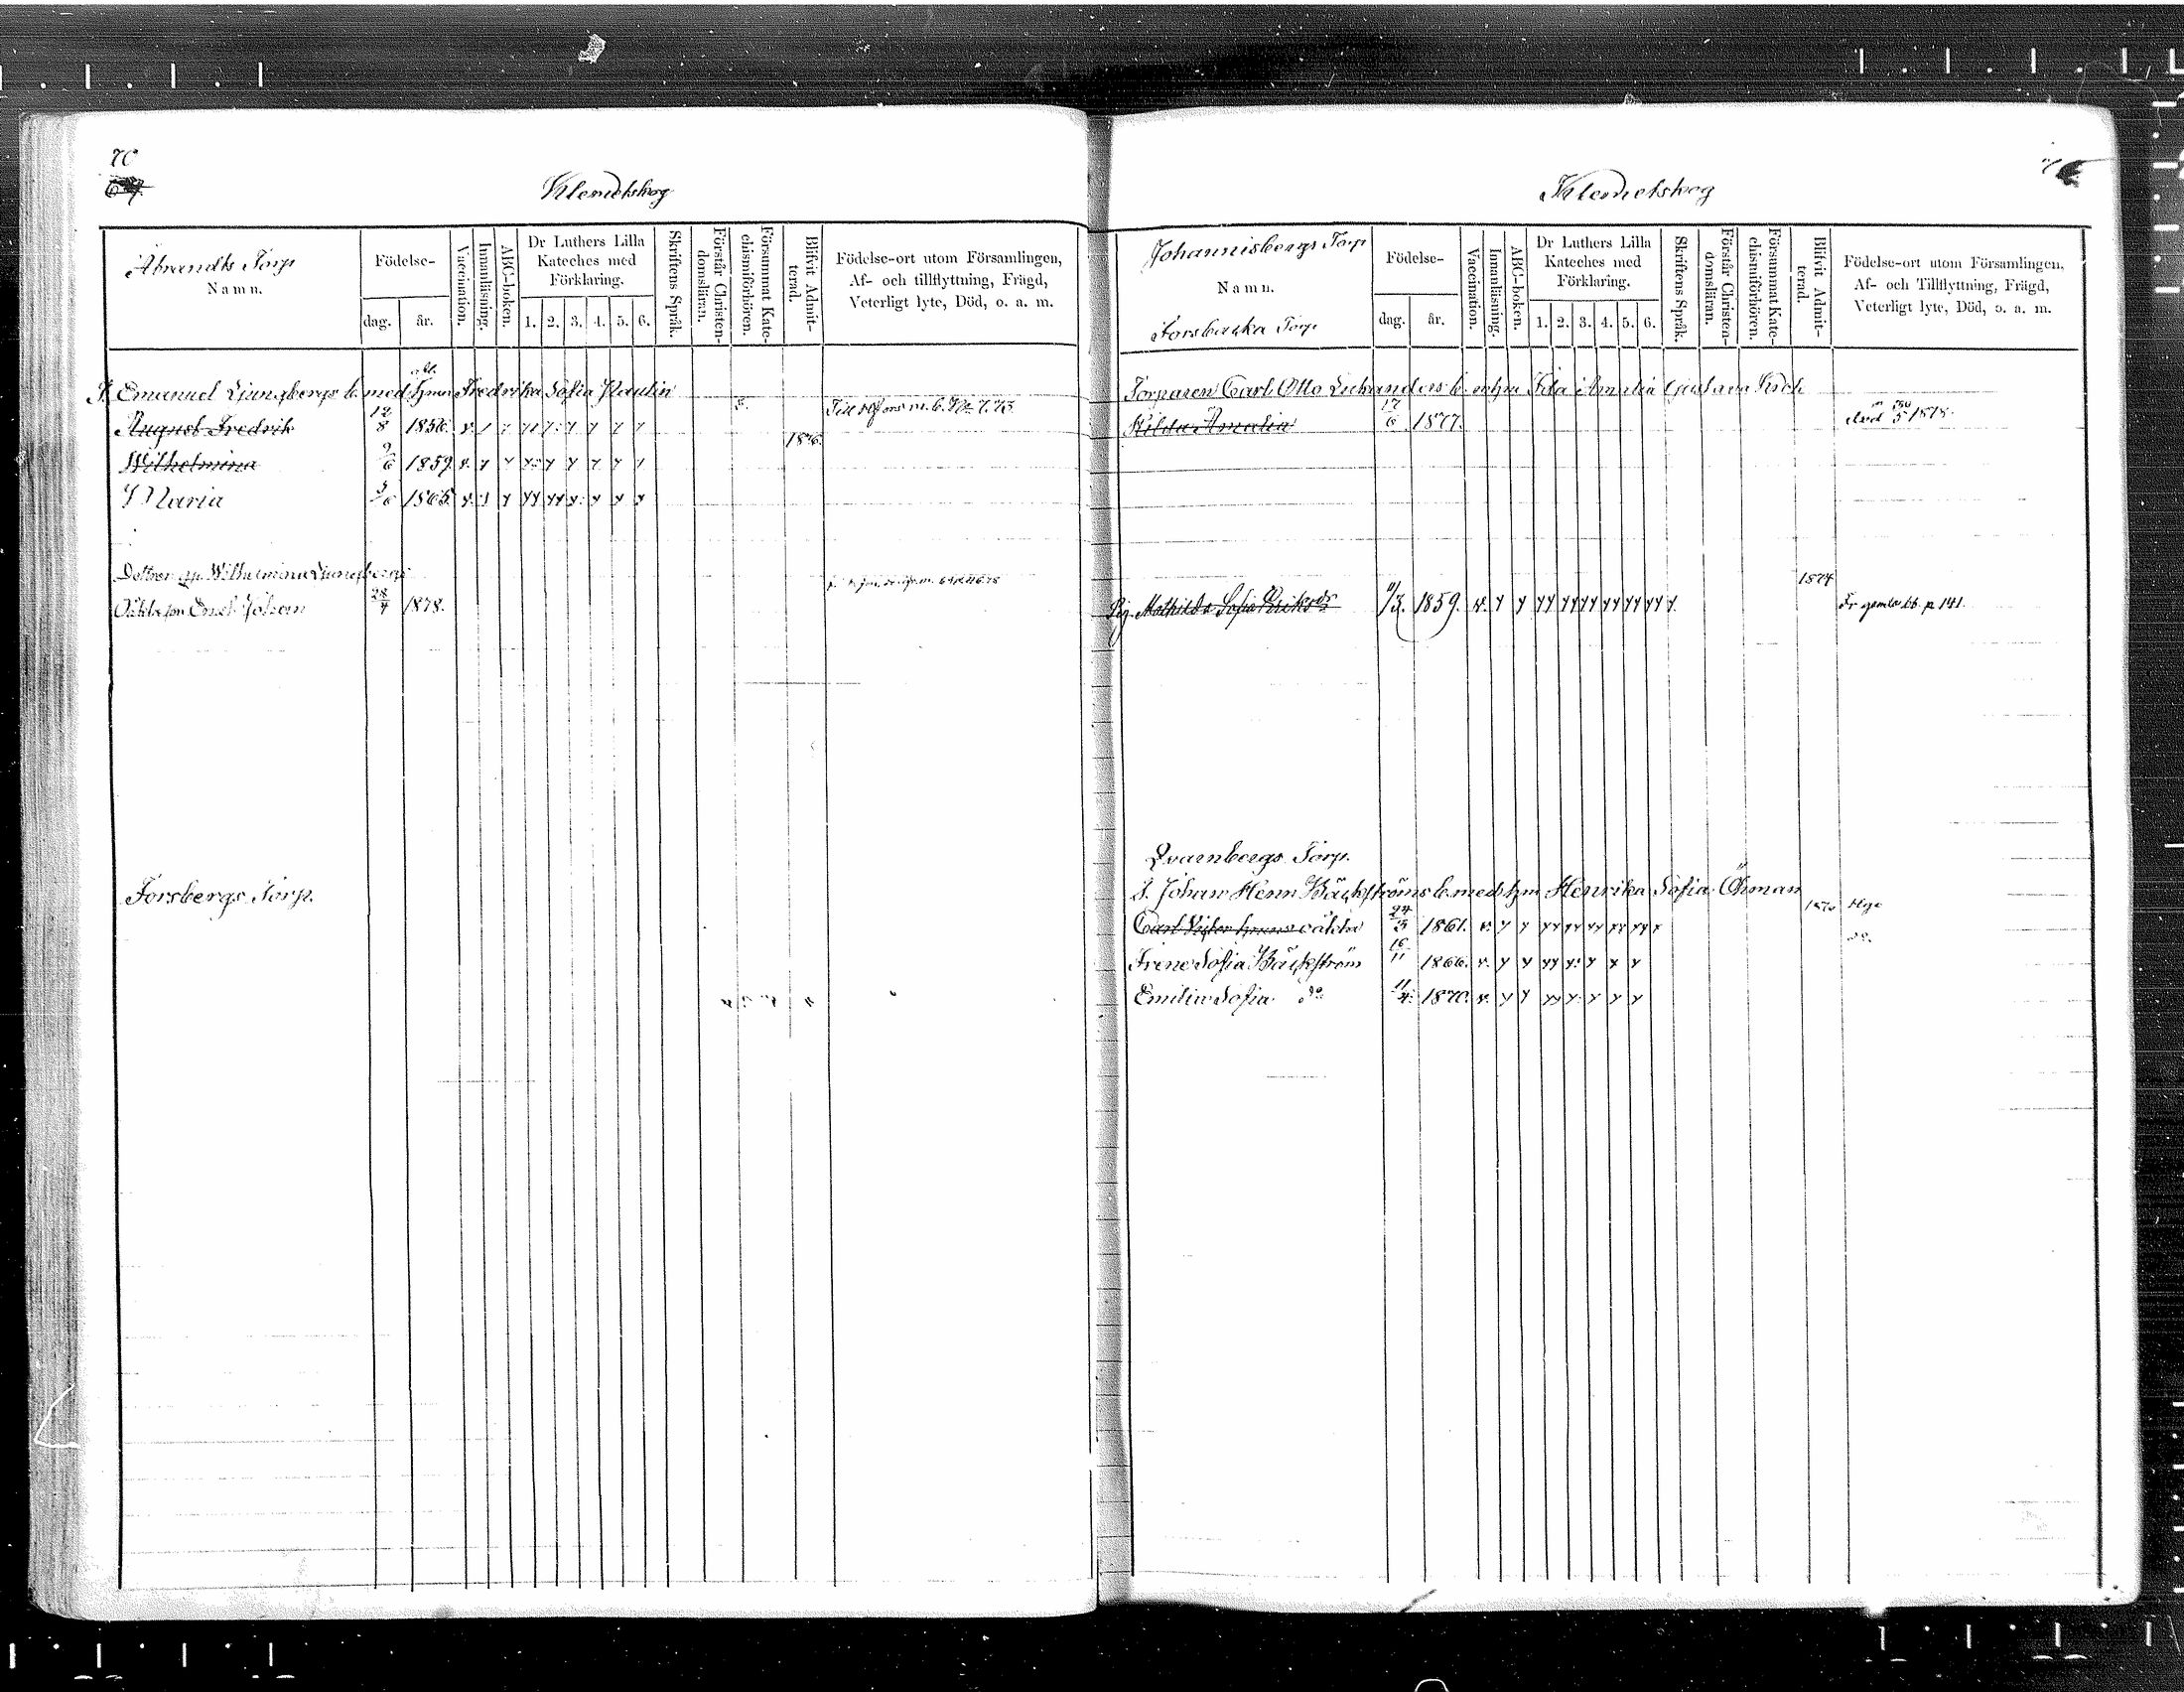 70
Klemetskog
Åbrandts Torp
Namn.
Födelse-
dag.
år.
Vaccination.
Innanläsning.
ABC-boken.
Dr Luthers Lilla
Kateches med
Förklaring.
1. 2. 3. 4. 5. 6.
Skriftens Språk.
Förstår Christen-
domsläran.
Försummat Kate-
chismiförhören.
Blifvit Admit-
terad.
Födelse-ort utom Församlingen,
Af- och tillflyttning, Frägd,
Veterligt lyte, Död, o. a. m.
Emanuel Ljungbergs b. med hm Fredrika Sofia Paulin
August Fredrik 12/8 1856
Wilhelmina 2/6 1859 1876
Maria 1865
Wilhelmina Ljungbergs
Johan 28/4 1878.
Forsbergs Torp.
Klemetskog
Johannisbergs Torp
Namn.
Forsbacka Torp
Födelse-
dag.
år.
Vaccination.
Innanläsning.
ABC-boken.
Dr Luthers Lilla
Kateches med
Förklaring.
1. 2. 3. 4. 5. 6.
Skriftens Språk.
Förstår Christen-
domsläran.
Försummat Kate-
chismiförhören.
Blifvit Admit-
terad.
Födelse-ort utom Församlingen,
Af- och Tillflyttning, Frägd,
Veterligt lyte, Död, o. a. m.
Torparen Carl Otto b. m hm Ida Amalia Gustava
Hilda Amalia 17/6 1877. död 1878.
Pig. Mathilda Sofia Eriksdr 11/3. 1859. 1874 Fr gamla bb. p 141.
Qvarnbergs Torp.
Johan Henr Bäckströms b. med hm Henrika Sofia Öhman
Carl oäkta 24/3 1861.
Irene Sofia Bäckström 16/11 1866.
Emilia Sofia do 11/4 1870.